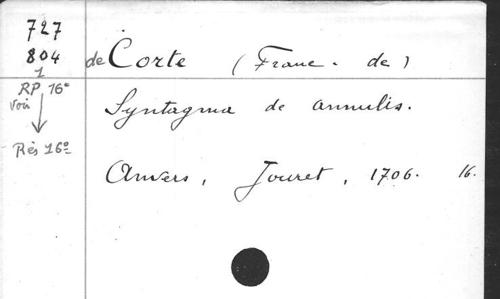 727
804
1
RP 16º
voir
Rés 16º
de Corte (Franc. de)
Syntagma de annulis.
Anvers, Jouret, 1706. 16.